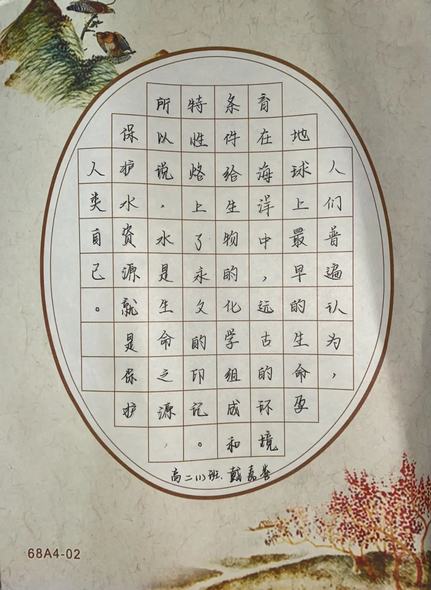 人们普遍认为，
地球上最早的生命孕
育在海洋中，远古的环境
条件给生物的化学组成和
特性烙上了永久的印记。
所以说，水是生命之源，
保护水资源就是保护
人类自己。
高二(1)班.戴嘉
68A4-02